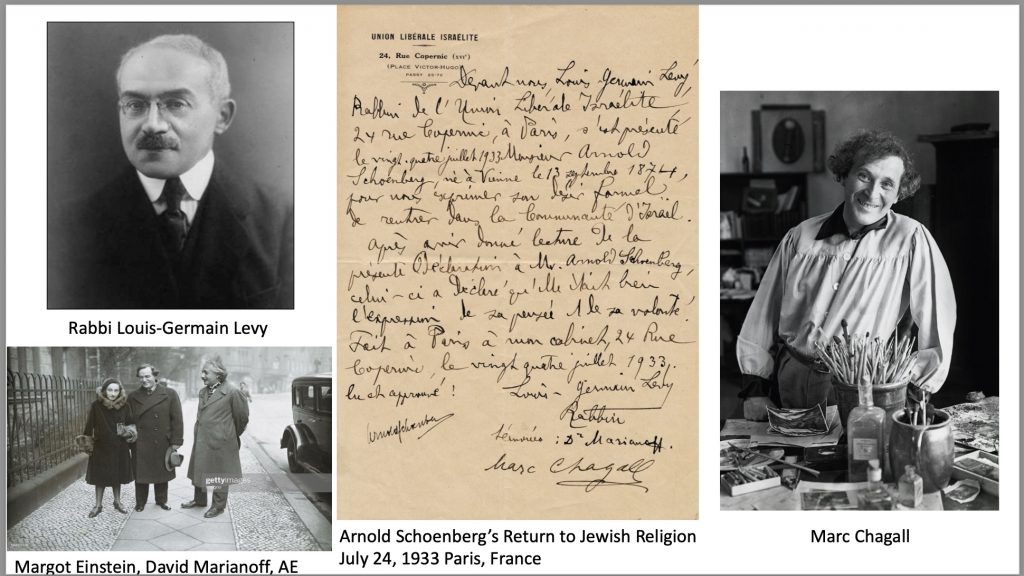 Rabbi Louis-Germain Levy
gettyimages
Margot Einstein, David Marianoff, AE
UNION LIBÉRALE ISRAÉLITE
24, Rue Copernic (XVIᵉ)
(PLACE VICTOR-HUGO)
PASSY
Devant nous, Louis Germain Levy,
Rabbin de l'Union Libérale Israélite,
24 rue Copernic, à Paris, s'est présenté
le vingt-quatre juillet 1933 Monsieur Arnold
Schoenberg, né à Vienne le 13 septembre 1874,
pour nous exprimer son désir formel
de rentrer dans la Communauté d'Israël.
Après avoir donné lecture de la
présente Déclaration à Mr. Arnold Schoenberg,
celui-ci a déclaré qu'elle était bien
l'expression de sa pensée et de sa volonté.
Fait à Paris à mon cabinet, 24 Rue
Copernic, le vingt quatre juillet 1933.
lu et approuvé! Louis-Germain Levy
Rabbin
Arnold Schoenberg
témoins: Dr Marianoff.
Marc Chagall
Arnold Schoenberg's Return to Jewish Religion
July 24, 1933 Paris, France
Marc Chagall